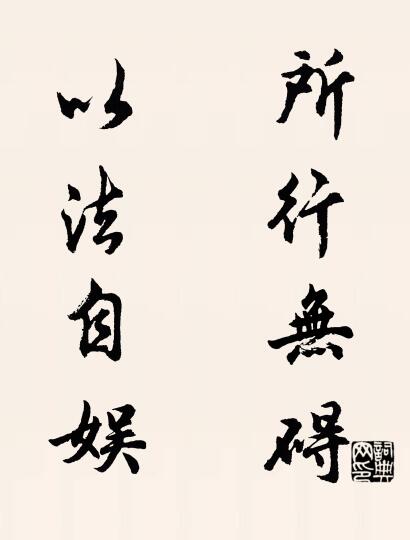 所行無碍
以法自娱
詞典網印